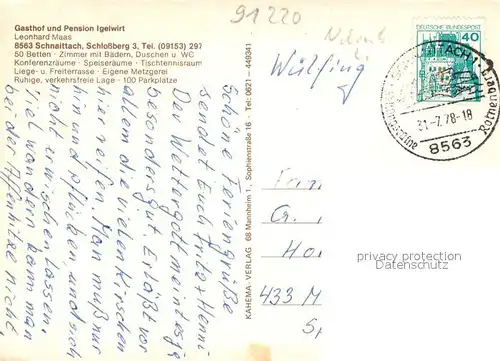 Gasthof und Pension Igelwirt
Leonhard Maas
8563 Schnaittach, Schloßberg 3, Tel. (09153) 297
50 Betten · Zimmer mit Bädern, Duschen u. WC
Konferenzräume · Speiseräume · Tischtennisraum
Liege- u. Freiterrasse · Eigene Metzgerei
Ruhige, verkehrsfreie Lage · 100 Parkplätze
91220
Wülfing
Schöne Feriengrüße
sendet Euch Fritz + Henni
Der Wettergott meint es ja
besonders gut. Er läßt vor
allem die vielen Kirschen
hier reifen. Man muß nur
hin und pflücken, und sich
nicht erwischen lassen.
Viel wandern kann man
bei der Affenhitze nicht,
KAHEMA-VERLAG 68 Mannheim 1, Sophienstraße 16 · Tel. 0621 - 449341
DEUTSCHE BUNDESPOST
40
31.-7.78-18
8563
Rothenberg
Fam
G.
Ho
433 M
S
privacy protection
www.ansichtskartenversand.com